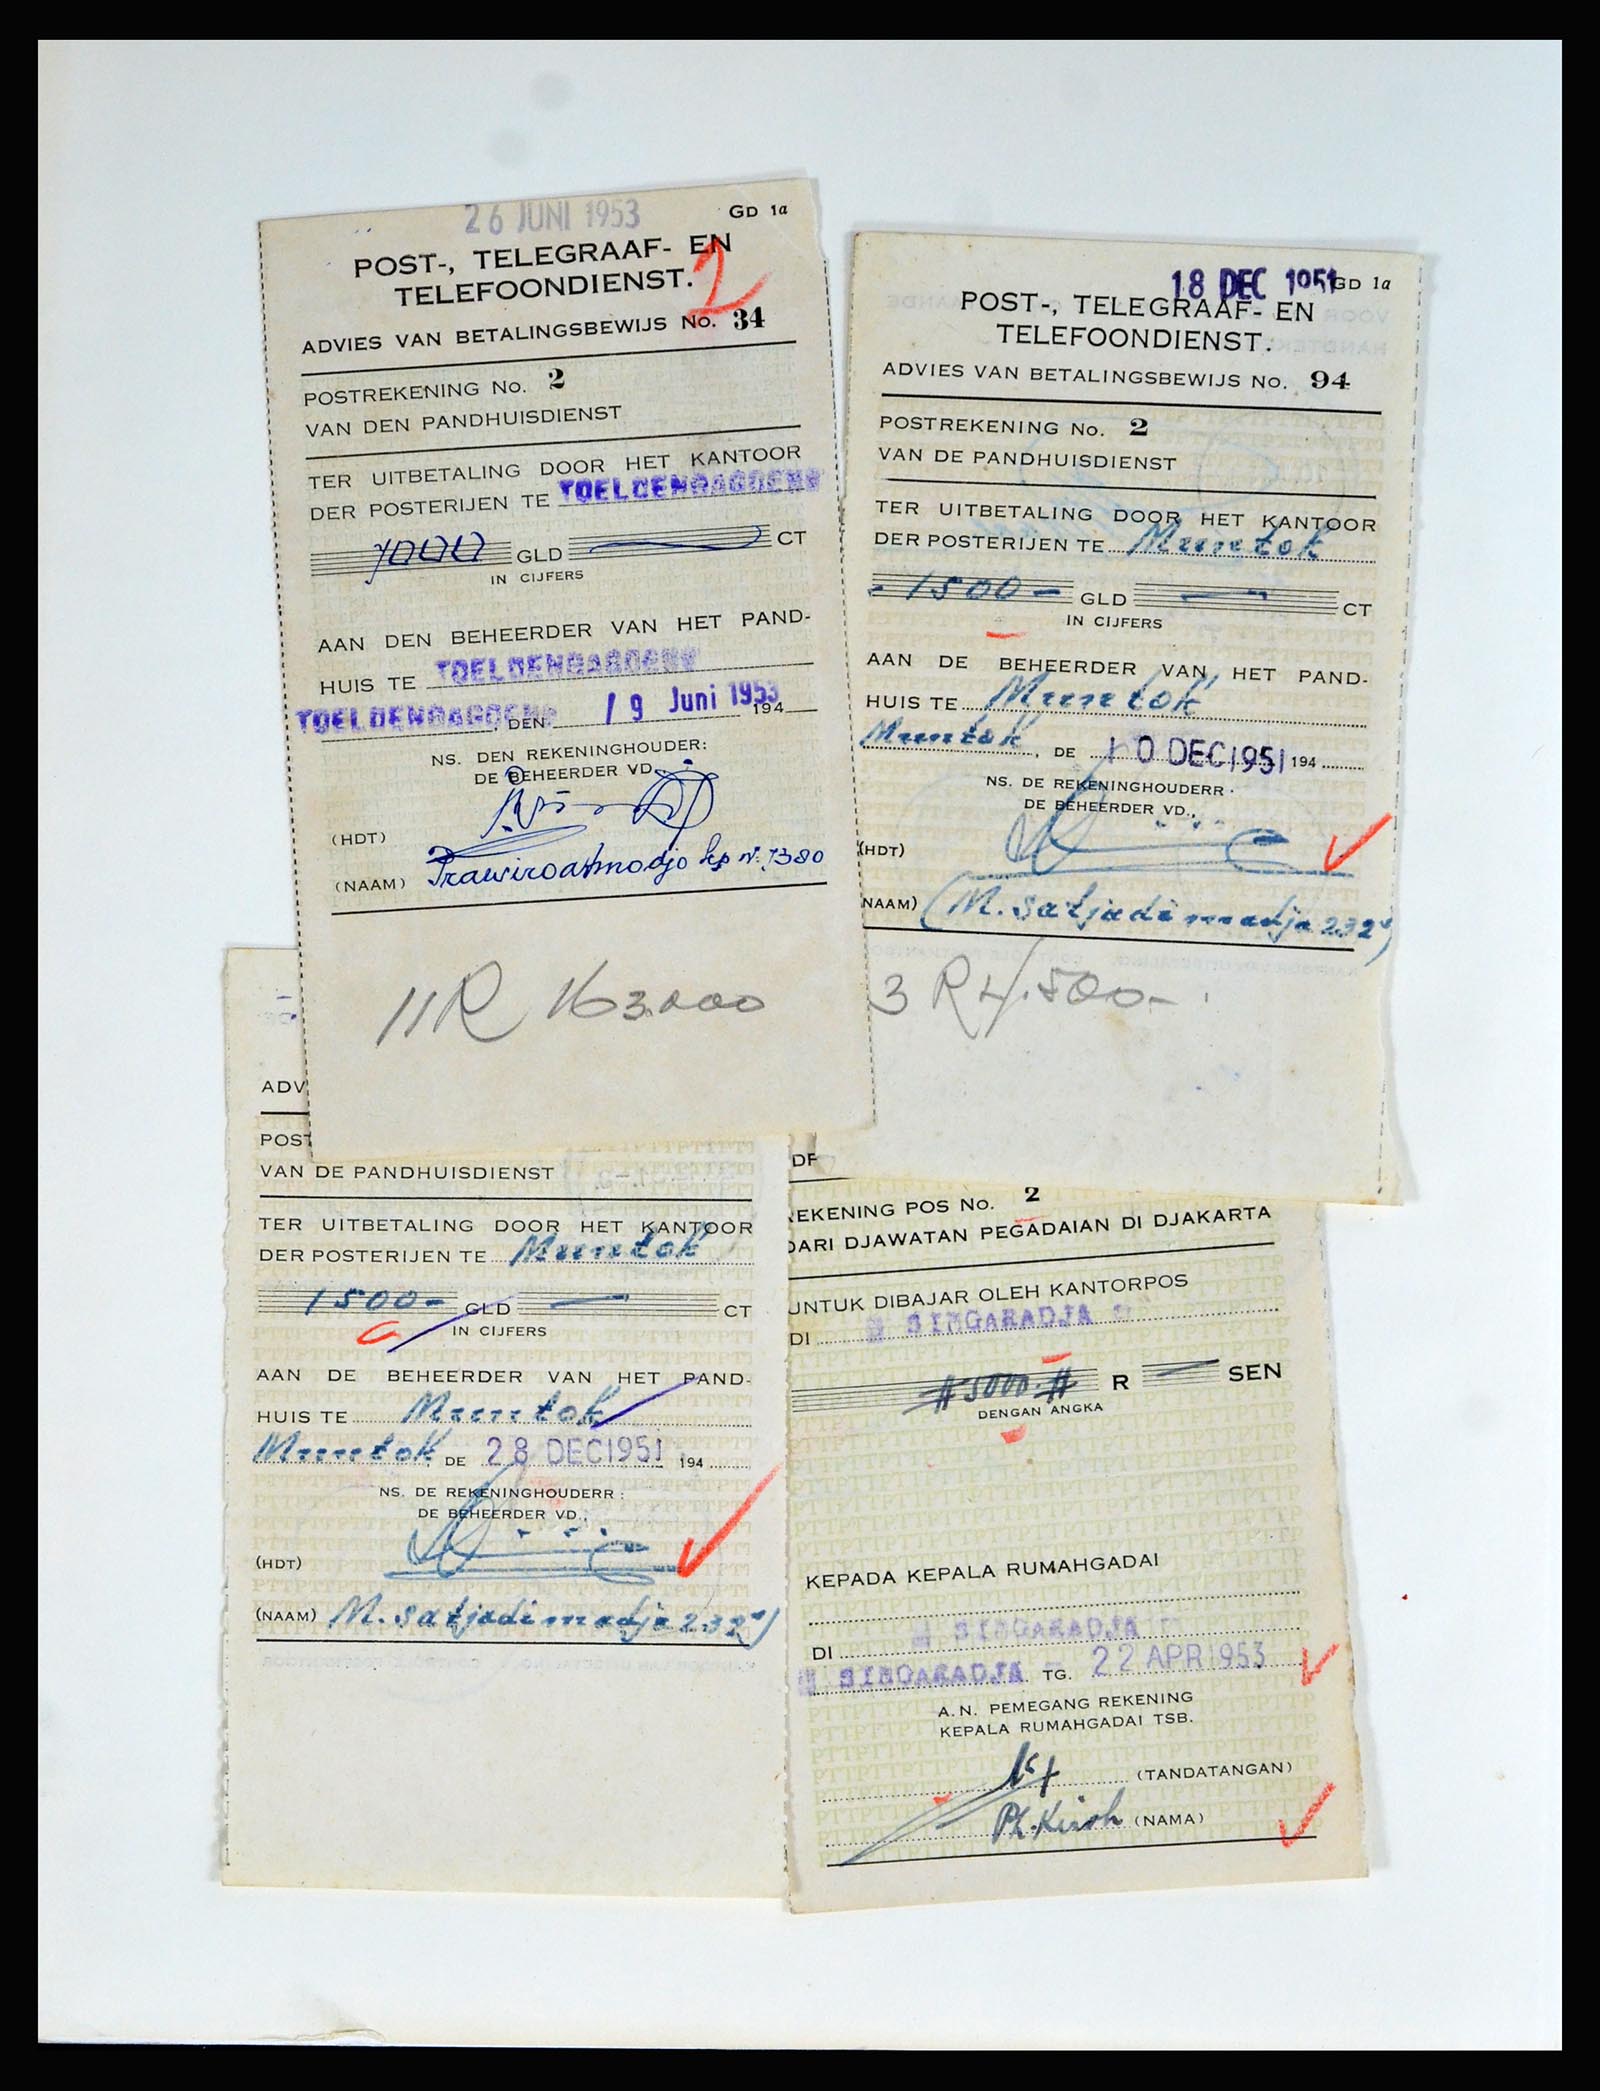 26 JUNI 1953
GD 1a
POST-, TELEGRAAF- EN
TELEFOONDIENST.
2
ADVIES VAN BETALINGSBEWIJS No. 34
POSTREKENING No. 2
VAN DEN PANDHUISDIENST
TER UITBETALING DOOR HET KANTOOR
DER POSTERIJEN TE
GLD CT
IN CIJFERS
AAN DEN BEHEERDER VAN HET PAND-
HUIS TE
, DEN 19 Juni 1953 194
NS. DEN REKENINGHOUDER:
DE BEHEERDER VD.
(HDT)
(NAAM) Prawiroatmodjo kp nr. 7380
11 R 163.000
18 DEC 1951 GD 1a
POST-, TELEGRAAF- EN
TELEFOONDIENST.
ADVIES VAN BETALINGSBEWIJS No. 94
POSTREKENING No. 2
VAN DE PANDHUISDIENST
TER UITBETALING DOOR HET KANTOOR
DER POSTERIJEN TE Muntok
- 1500 - GLD — CT
IN CIJFERS
AAN DE BEHEERDER VAN HET PAND-
HUIS TE Muntok
Muntok, DE 10 DEC 1951 194
NS. DE REKENINGHOUDERR
DE BEHEERDER VD.,
(HDT)
NAAM) (M. Satjadimadja 232)
3 R 4.500.-
ADV
POST
VAN DE PANDHUISDIENST
TER UITBETALING DOOR HET KANTOOR
DER POSTERIJEN TE Muntok
1500- GLD — CT
IN CIJFERS
AAN DE BEHEERDER VAN HET PAND-
HUIS TE Muntok
Muntok, DE 28 DEC 1951 194
NS. DE REKENINGHOUDERR:
DE BEHEERDER VD.,
(HDT)
(NAAM) M. Satjadimadja 232)
REKENING POS No. 2
DARI DJAWATAN PEGADAIAN DI DJAKARTA
UNTUK DIBAJAR OLEH KANTORPOS
DI SINGARADJA
# 5000.# R — SEN
DENGAN ANGKA
KEPADA KEPALA RUMAHGADAI
DI SINGARADJA
SINGARADJA TG. 22 APR 1953
A.N. PEMEGANG REKENING
KEPALA RUMAHGADAI TSB.
(TANDATANGAN)
(NAMA)